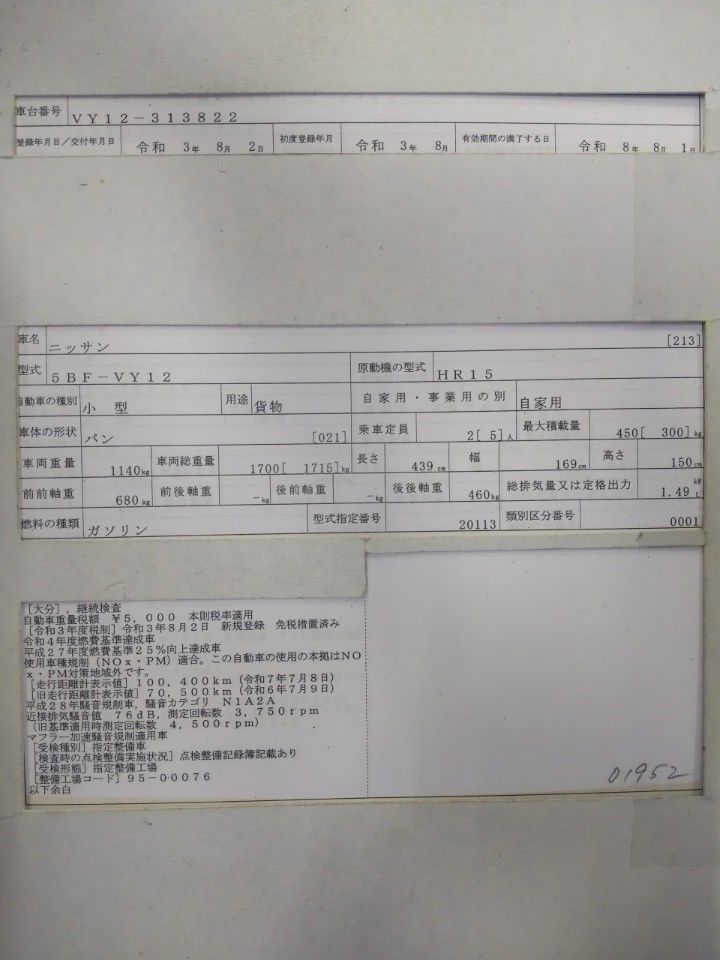 車台番号 VY12-313822
登録年月日/交付年月日 令和 3年 8月 2日 初度登録年月 令和 3年 8月 有効期間の満了する日 令和 8年 8月 1日
車名 ニッサン [213]
型式 5BF-VY12 原動機の型式 HR15
自動車の種別 小型 用途 貨物 自家用・事業用の別 自家用
車体の形状 バン [021] 乗車定員 2[ 5]人 最大積載量 450[ 300]kg
車両重量 1140kg 車両総重量 1700[ 1715]kg 長さ 439cm 幅 169cm 高さ 150cm
前前軸重 680kg 前後軸重 -kg 後前軸重 -kg 後後軸重 460kg 総排気量又は定格出力 1.49 kW L
燃料の種類 ガソリン 型式指定番号 20113 類別区分番号 0001
[大分],継続検査
自動車重量税額 ¥5,000 本則税率適用
[令和3年度税制]令和3年8月2日 新規登録 免税措置済み
令和4年度燃費基準達成車
平成27年度燃費基準25%向上達成車
使用車種規制(NOx・PM)適合。この自動車の使用の本拠はNO
x・PM対策地域外です。
[走行距離計表示値]100,400km(令和7年7月8日)
[旧走行距離計表示値]70,500km(令和6年7月9日)
平成28年騒音規制車,騒音カテゴリ N1A2A
近接排気騒音値 76dB,測定回転数 3,750rpm
(旧基準適用時測定回転数 4,500rpm)
マフラー加速騒音規制適用車
[受検種別]指定整備車
[検査時の点検整備実施状況]点検整備記録簿記載あり
[受検形態]指定整備工場
[整備工場コード]95-00076
以下余白
01952